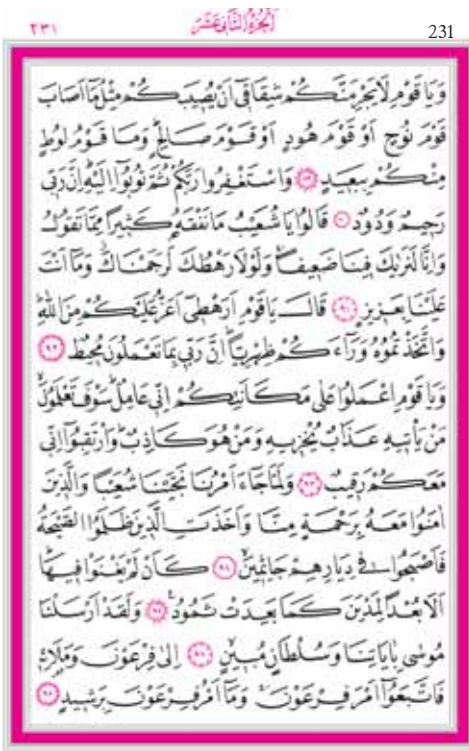 ٢٣١ اَلْجُزْءُ الثَّانِى عَشَرَ 231
وَيَا قَوْمِ لَا يَجْرِمَنَّكُمْ شِقَاقٖٓى اَنْ يُصٖيبَكُمْ مِثْلُ مَٓا اَصَابَ
قَوْمَ نُوحٍ اَوْ قَوْمَ هُودٍ اَوْ قَوْمَ صَالِحٍ وَمَا قَوْمُ لُوطٍ
مِنْكُمْ بِبَعٖيدٍ ﴿٨٩﴾ وَاسْتَغْفِرُوا رَبَّكُمْ ثُمَّ تُوبُٓوا اِلَيْهِ اِنَّ رَبّٖى
رَحٖيمٌ وَدُودٌ ﴿٩٠﴾ قَالُوا يَا شُعَيْبُ مَا نَفْقَهُ كَثٖيرًا مِمَّا تَقُولُ
وَاِنَّا لَنَرٰيكَ فٖينَا ضَعٖيفًا وَلَوْلَا رَهْطُكَ لَرَجَمْنَاكَ وَمَٓا اَنْتَ
عَلَيْنَا بِعَزٖيزٍ ﴿٩١﴾ قَالَ يَا قَوْمِ اَرَهْطٖٓى اَعَزُّ عَلَيْكُمْ مِنَ اللّٰهِ
وَاتَّخَذْتُمُوهُ وَرَٓاءَكُمْ ظِهْرِيًّا اِنَّ رَبّٖى بِمَا تَعْمَلُونَ مُحٖيطٌ ﴿٩٢﴾
وَيَا قَوْمِ اعْمَلُوا عَلٰى مَكَانَتِكُمْ اِنّٖى عَامِلٌ سَوْفَ تَعْلَمُونَ
مَنْ يَأْتٖيهِ عَذَابٌ يُخْزٖيهِ وَمَنْ هُوَ كَاذِبٌ وَارْتَقِبُٓوا اِنّٖى
مَعَكُمْ رَقٖيبٌ ﴿٩٣﴾ وَلَمَّا جَٓاءَ اَمْرُنَا نَجَّيْنَا شُعَيْبًا وَالَّذٖينَ
اٰمَنُوا مَعَهُ بِرَحْمَةٍ مِنَّا وَاَخَذَتِ الَّذٖينَ ظَلَمُوا الصَّيْحَةُ
فَاَصْبَحُوا فٖى دِيَارِهِمْ جَاثِمٖينَ ﴿٩٤﴾ كَاَنْ لَمْ يَغْنَوْا فٖيهَا
اَلَا بُعْدًا لِمَدْيَنَ كَمَا بَعِدَتْ ثَمُودُ ﴿٩٥﴾ وَلَقَدْ اَرْسَلْنَا
مُوسٰى بِاٰيَاتِنَا وَسُلْطَانٍ مُبٖينٍ ﴿٩٦﴾ اِلٰى فِرْعَوْنَ وَمَلَا۬ئِهٖ
فَاتَّبَعُٓوا اَمْرَ فِرْعَوْنَ وَمَٓا اَمْرُ فِرْعَوْنَ بِرَشٖيدٍ ﴿٩٧﴾